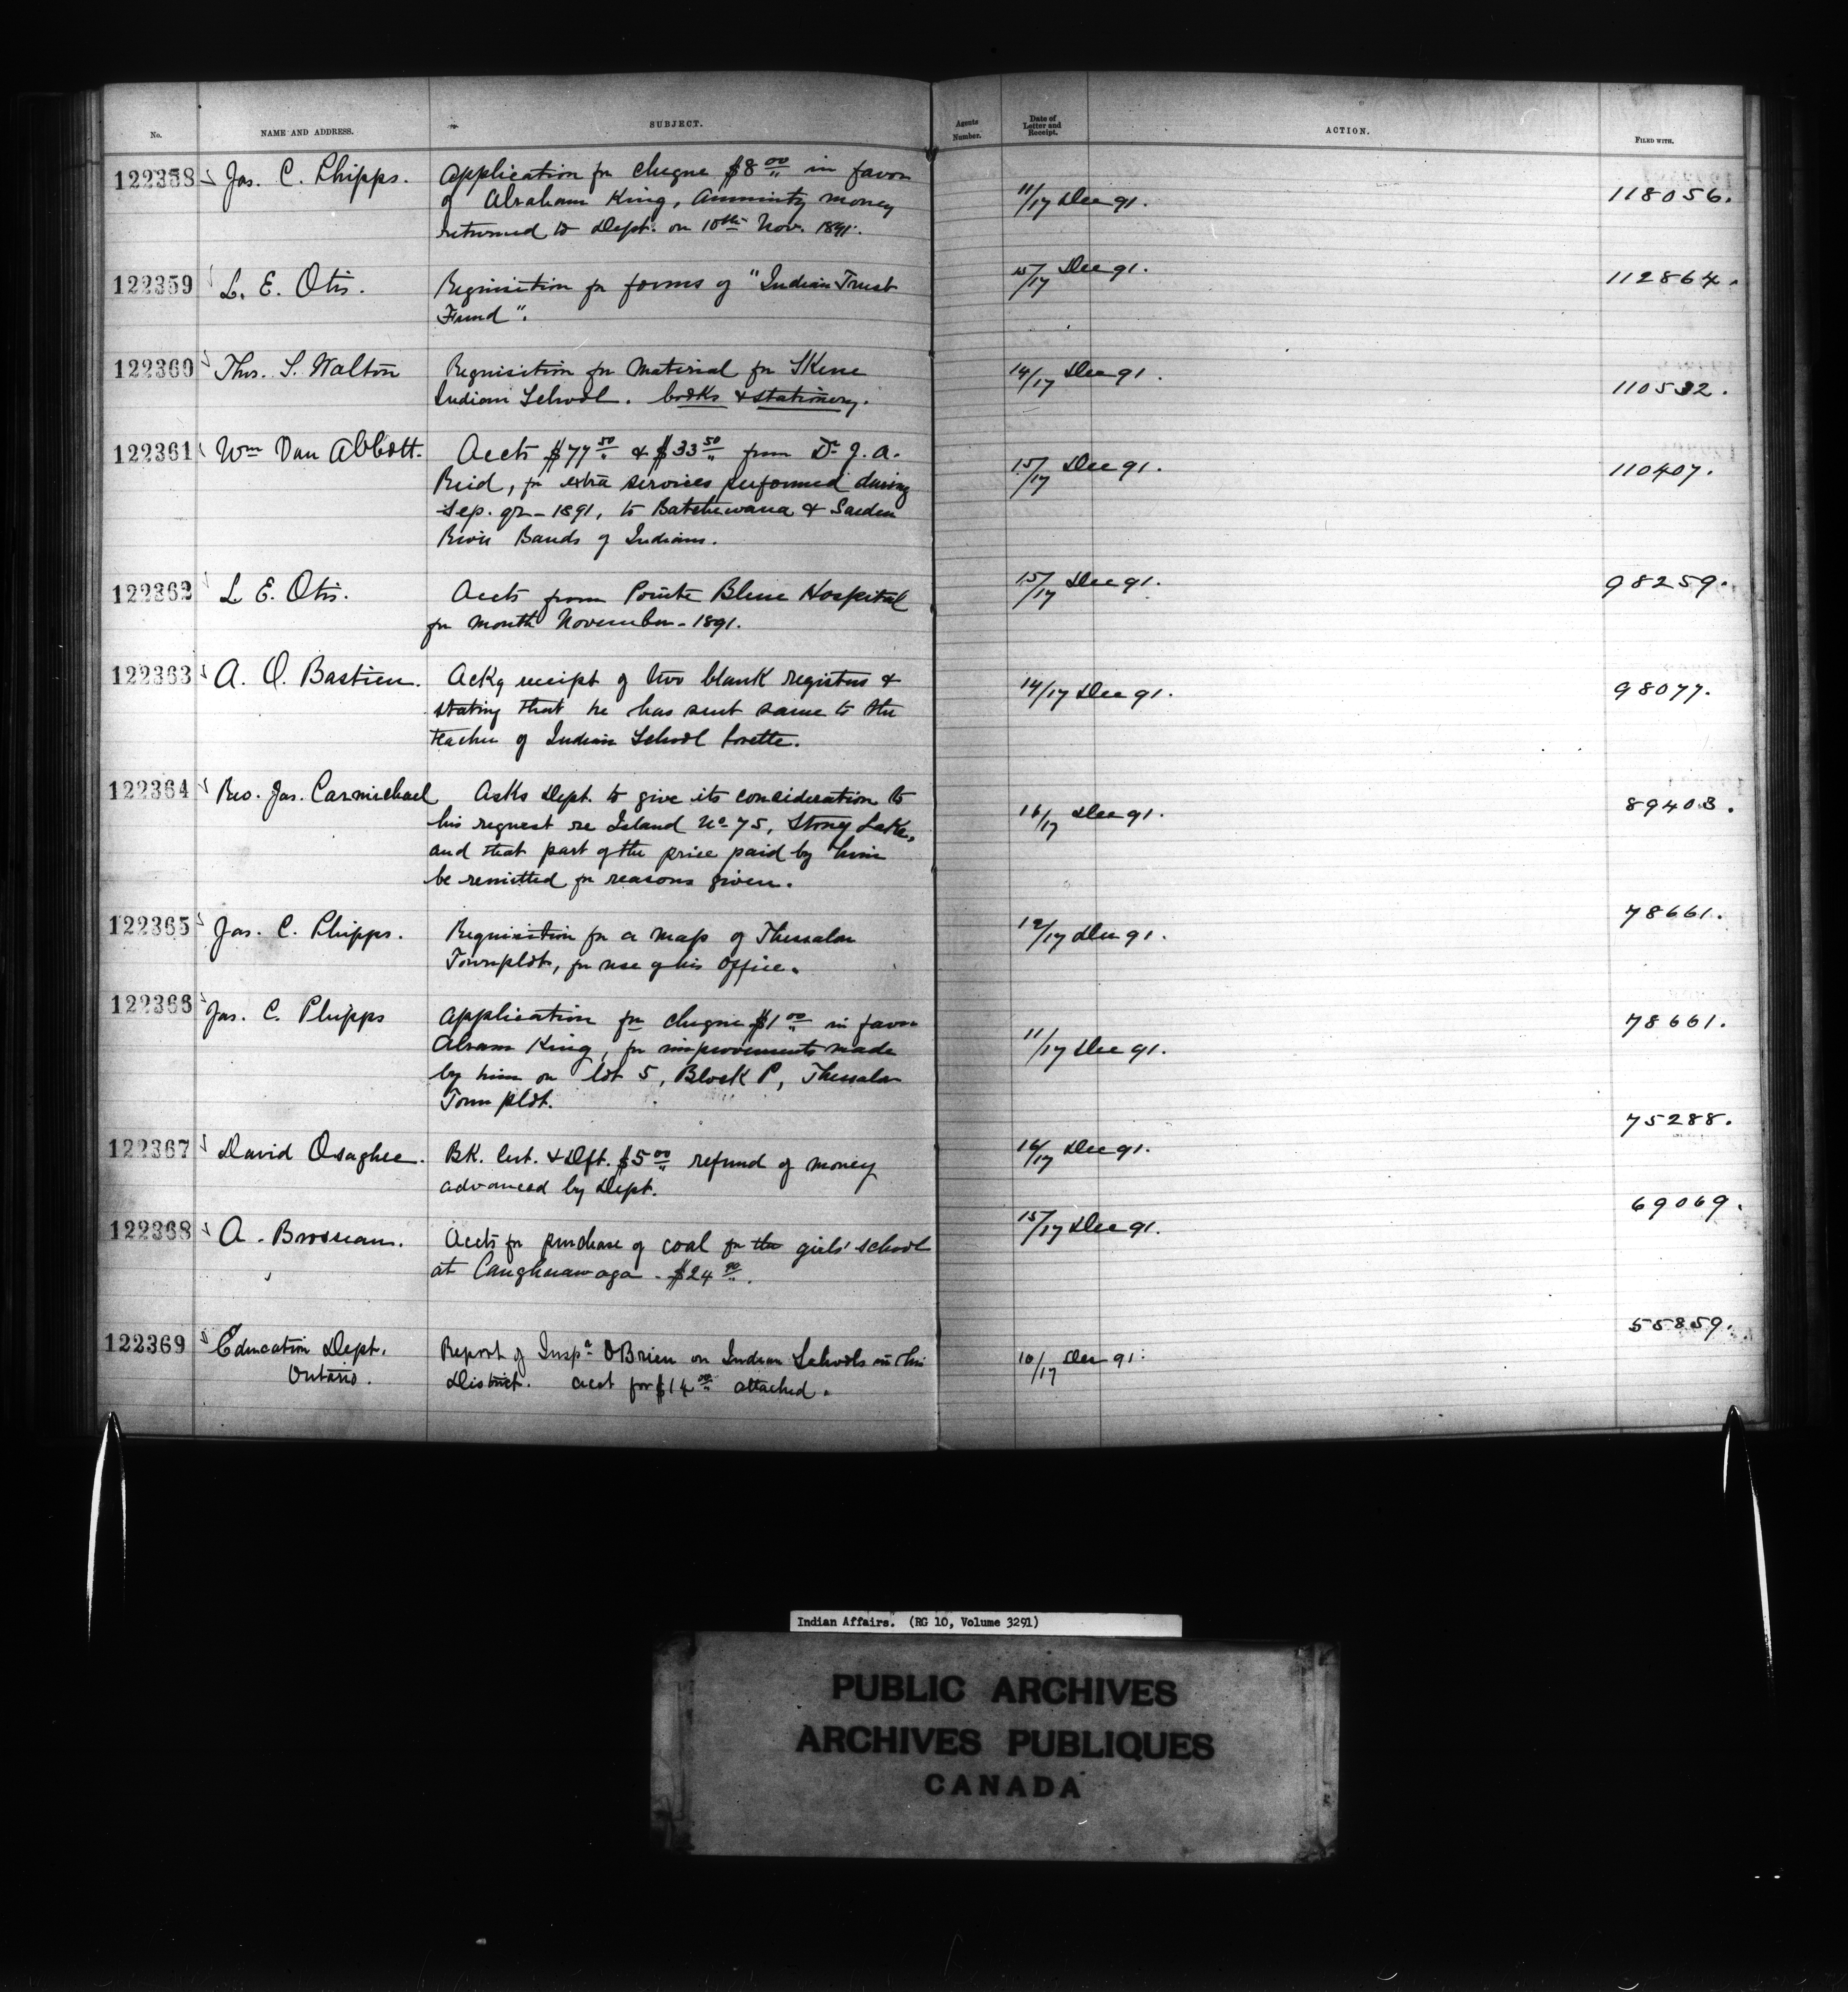 No. NAME AND ADDRESS. SUBJECT. Agents Number. Date of Letter and Receipt. ACTION. FILED WITH.
122358 Jas. C. Phipps. Application for cheque $8 00 in favor 11/17 Dec 91. 118056.
of Abraham King, Annuity money
returned to Dept. on 10th Nov. 1891.
122359 L. E. Otis. Requisition for forms of "Indian Trust 15/17 Dec 91. 112864.
Fund".
122360 Thos. S. Walton Requisition for Material for Skene 14/17 Dec 91. 110532.
Indian School. books & stationery.
122361 Wm Van Abbott. Accts $77 50 & $33 50 from Dr J. A. 15/17 Dec 91. 110407.
Reid, for extra services performed during
Sep. qr - 1891, to Batchewana & Garden
River Bands of Indians.
122362 L. E. Otis. Accts from Pointe Bleue Hospital 15/17 Dec 91. 98259.
for month November - 1891.
122363 A. O. Bastien. Ackg receipt of two blank registers & 14/17 Dec 91. 98077.
stating that he has sent same to the
teacher of Indian School Lorette.
122364 Rev. Jas. Carmichael Asks Dept. to give its consideration to 16/17 Dec 91. 89403.
his request re Island No 75, Stony Lake,
and that part of the price paid by him
be remitted for reasons given.
122365 Jas. C. Phipps. Requisition for a map of Thessalon 12/17 Dec 91. 78661.
Townplot, for use of his Office.
122366 Jas. C. Phipps Application for cheque $1 00 in favor 11/17 Dec 91. 78661.
Abram King, for improvements made
by him on lot 5, Block P, Thessalon
Town plot.
122367 David Osaghee. Bk. Cert. & Dft. $5 00 refund of money 16/17 Dec 91. 75288.
advanced by Dept.
122368 A. Brosseau. Accts for purchase of coal for the girls' school 15/17 Dec 91. 69069.
at Caughnawaga - $24 90.
122369 Education Dept. Report of Inspr O'Brien on Indian Schools in his 10/17 Dec 91. 55859.
Ontario. District. Acct for $14 00 attached.
Indian Affairs. (RG 10, Volume 3291)
PUBLIC ARCHIVES
ARCHIVES PUBLIQUES
CANADA